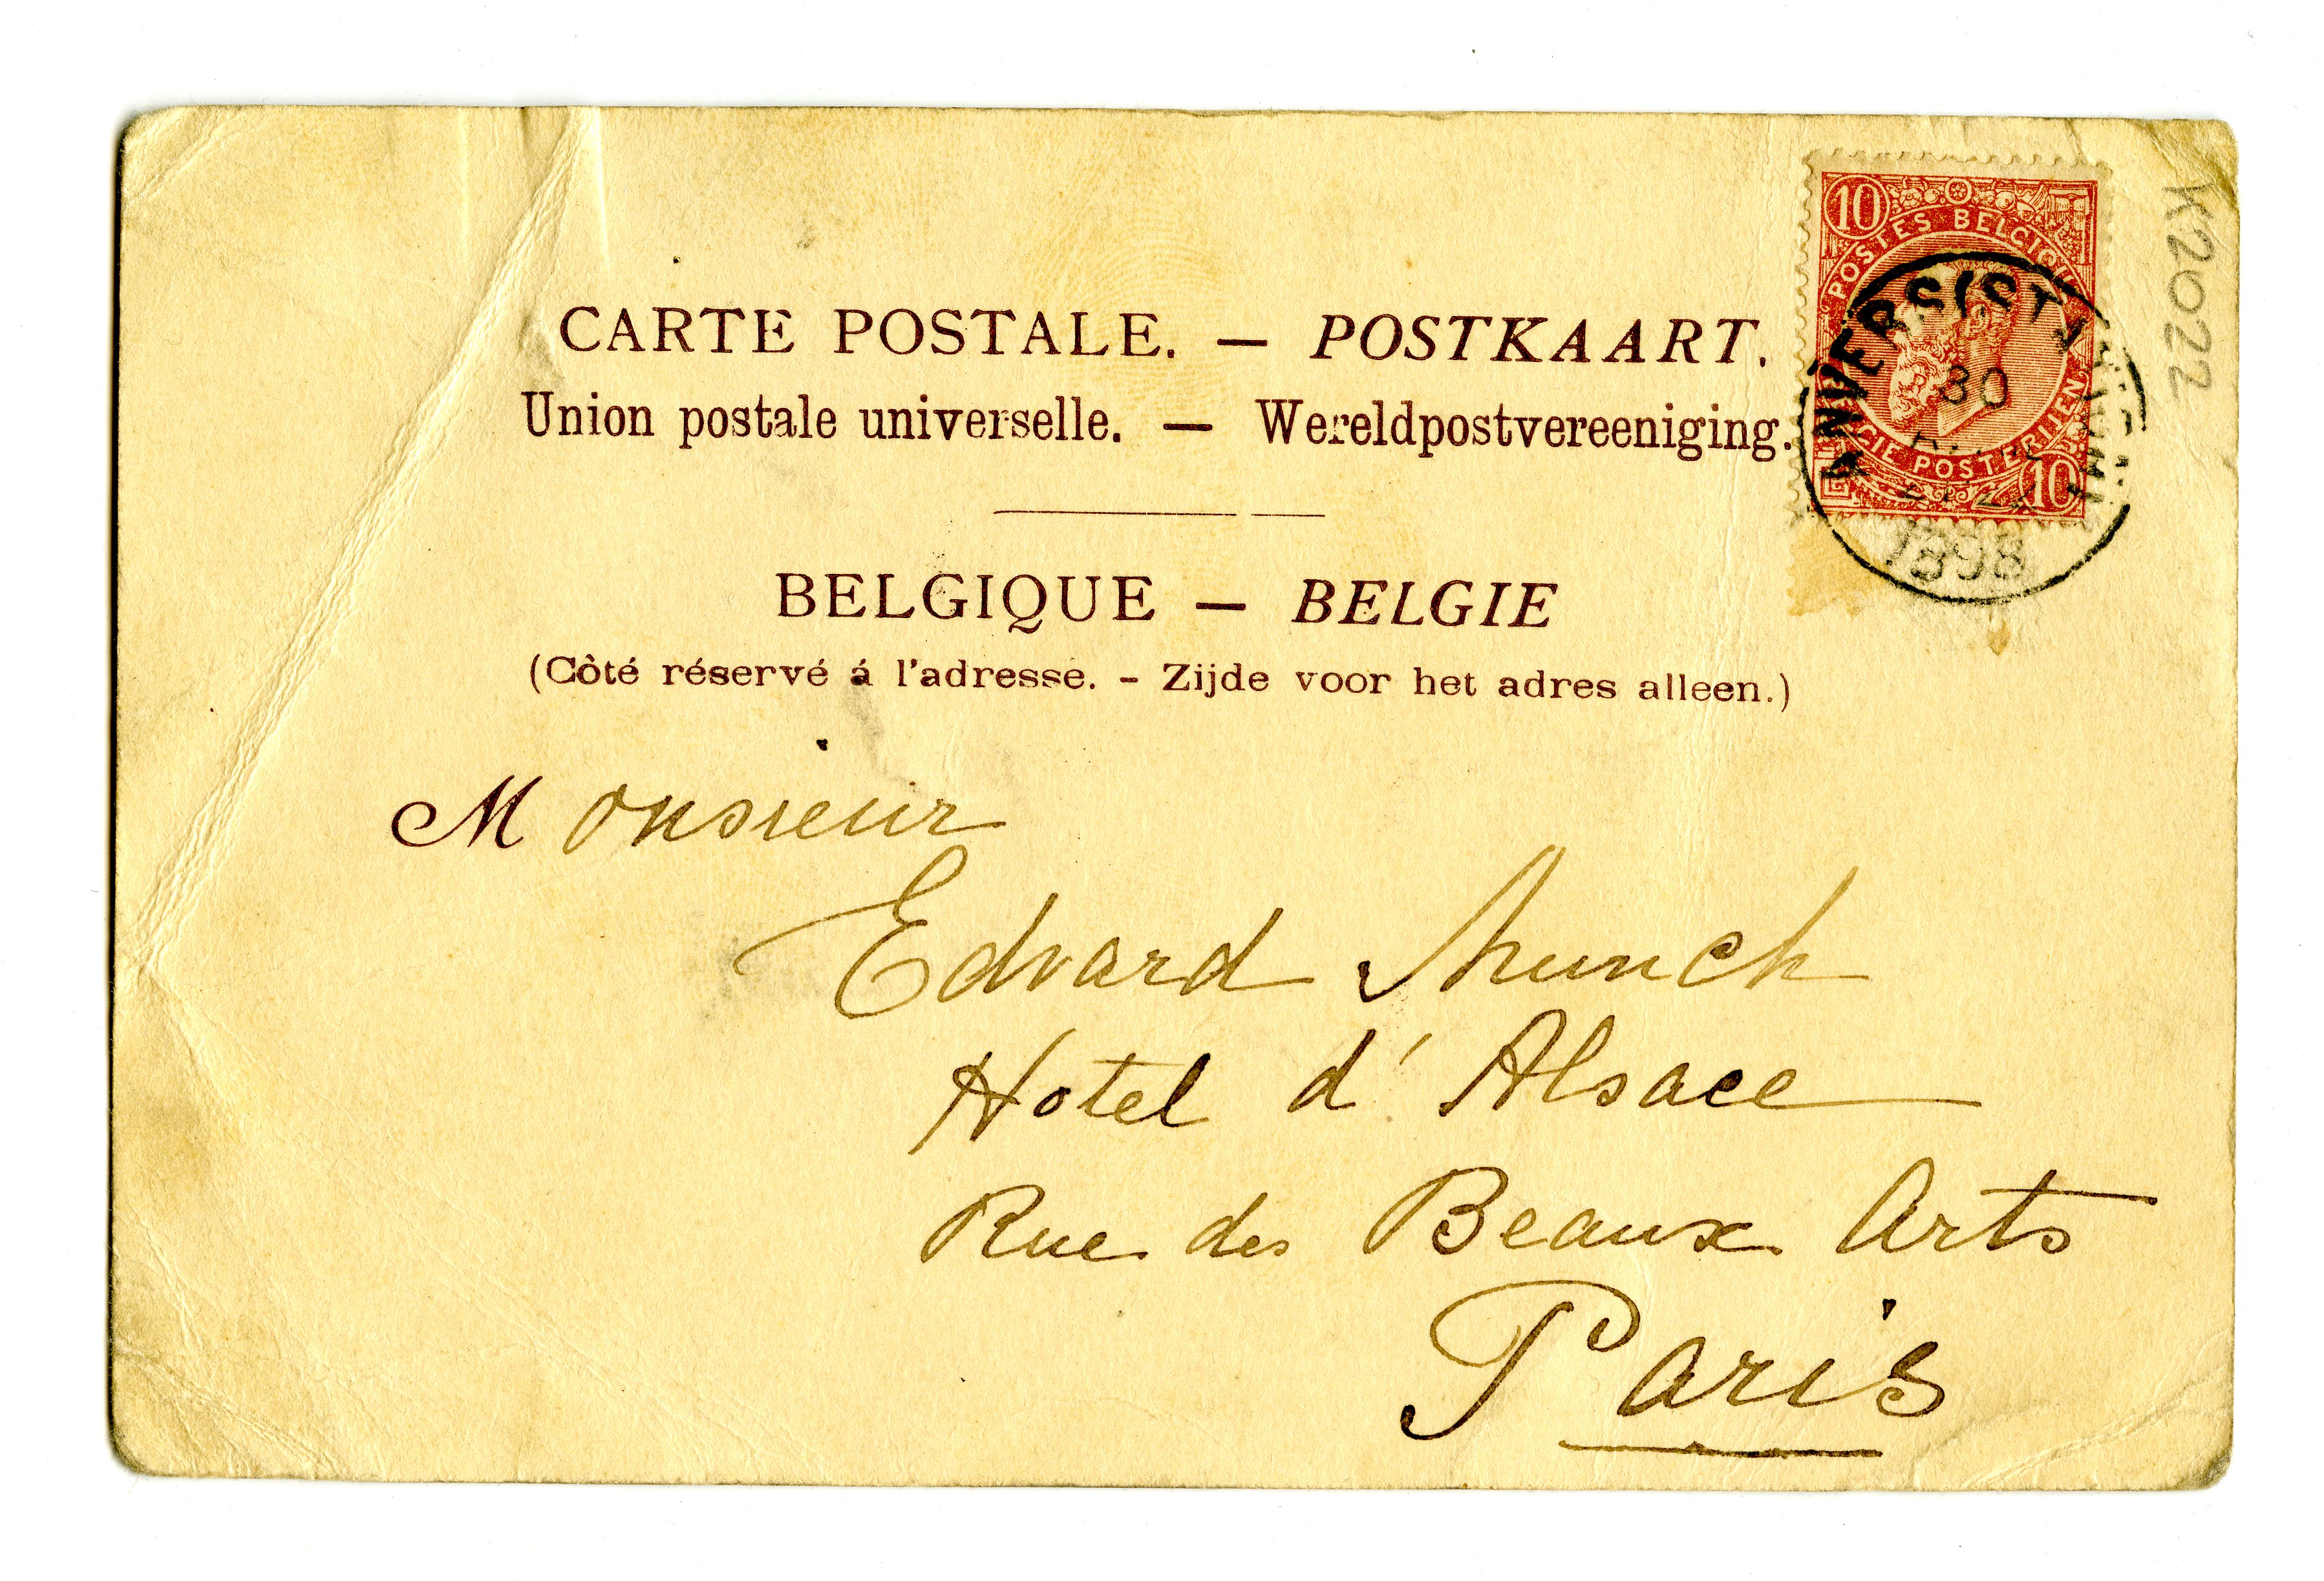 CARTE POSTALE. — POSTKAART.
Union postale universelle. — Wereldpostvereeniging.
BELGIQUE — BELGIE
(Côté réservé á l'adresse. - Zijde voor het adres alleen.)
10
POSTES BELGIQUE
POSTERIJEN
10
ANVERS (ST
30
1898
K2022
Monsieur
Edvard Munch
Hotel d'Alsace
Rue des Beaux Arts
Paris